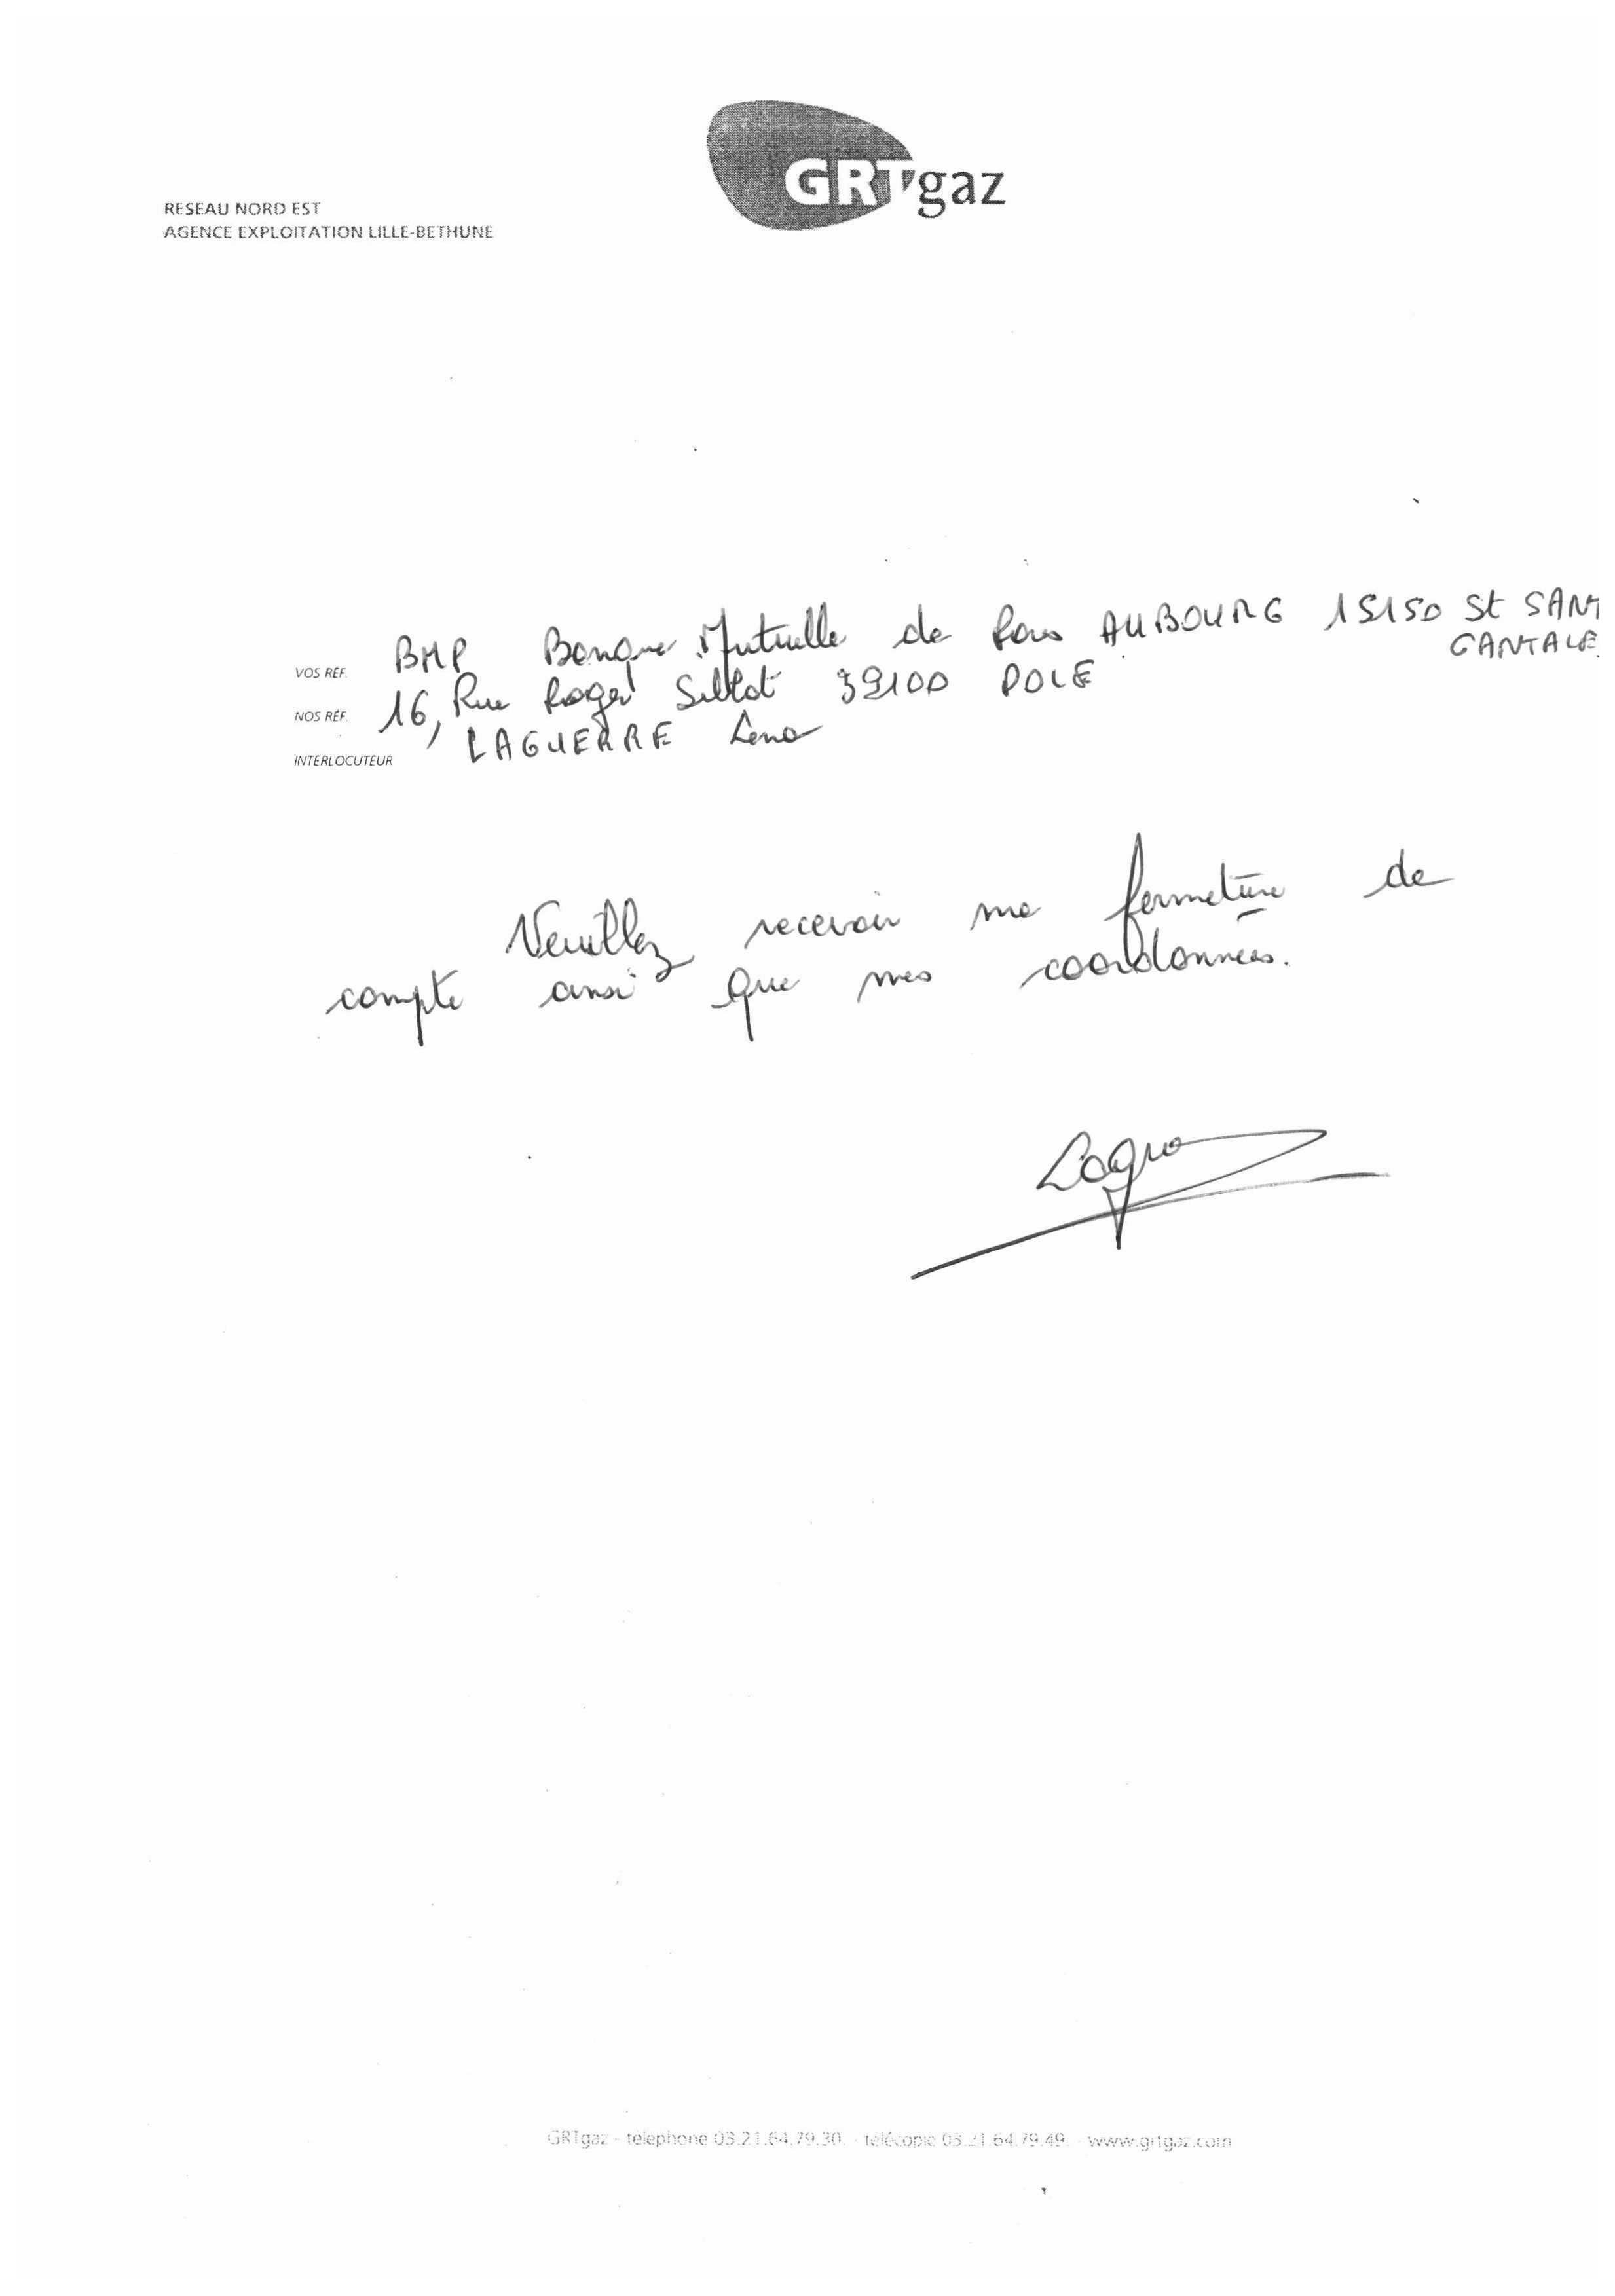 GRTgaz
RESEAU NORD EST
AGENCE EXPLOITATION LILLE-BETHUNE
VOS RÉF. BMP Banque Mutuelle de AUBOURG 15150 St SANT
CANTALE
NOS RÉF. 16, Rue Roger 39100 DOLE
INTERLOCUTEUR LAGUERRE Lena
Veuillez recevoir ma fermeture de
compte ainsi que mes coordonnées.
GRTgaz - telephone 03.21.64.79.30. - télécopie 03.21.64.79.49. - www.grtgaz.com